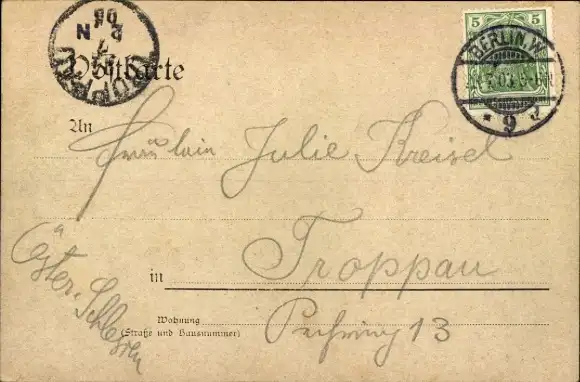 Postkarte
5 5
BERLIN. W.
* 9
An
Fräulein Julie Kreisel
in Troppau
Öster. Schlesien
Wohnung
(Straße und Hausnummer)
13